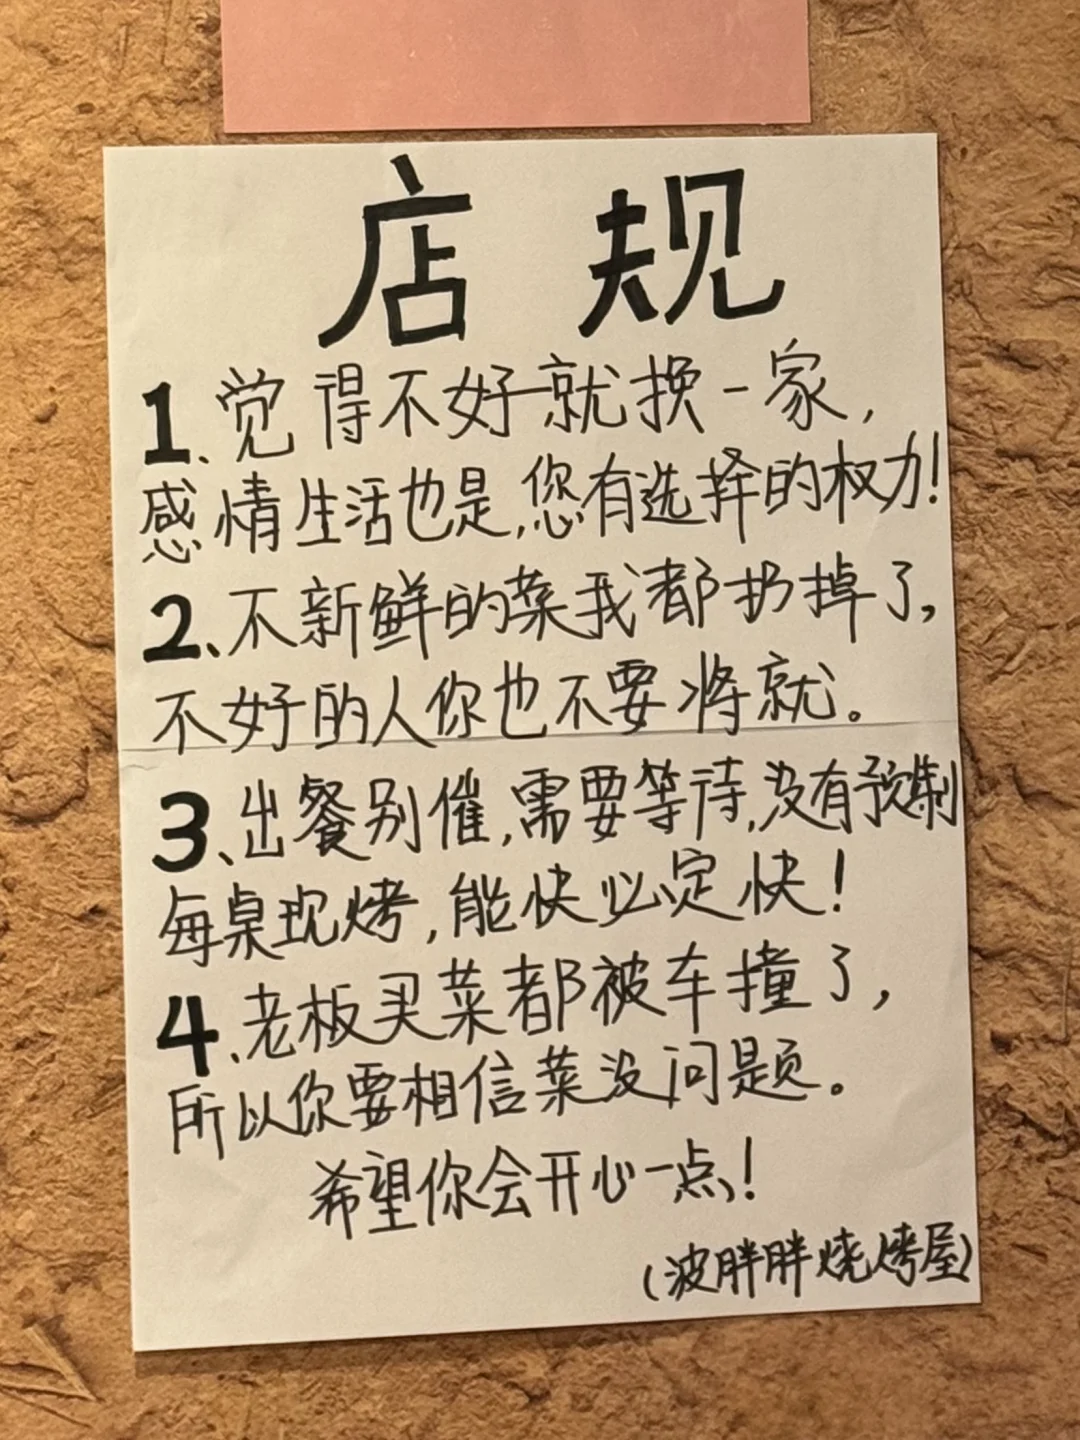 店 规
1、觉得不好就换一家,
感情生活也是,您有选择的权力!
2、不新鲜的菜我都扔掉了,
不好的人你也不要将就。
3、出餐别催,需要等待,没有预制
每桌现烤,能快必定快!
4、老板买菜都被车撞了,
所以你要相信菜没问题。
希望你会开心一点!
(波胖胖烧烤屋)